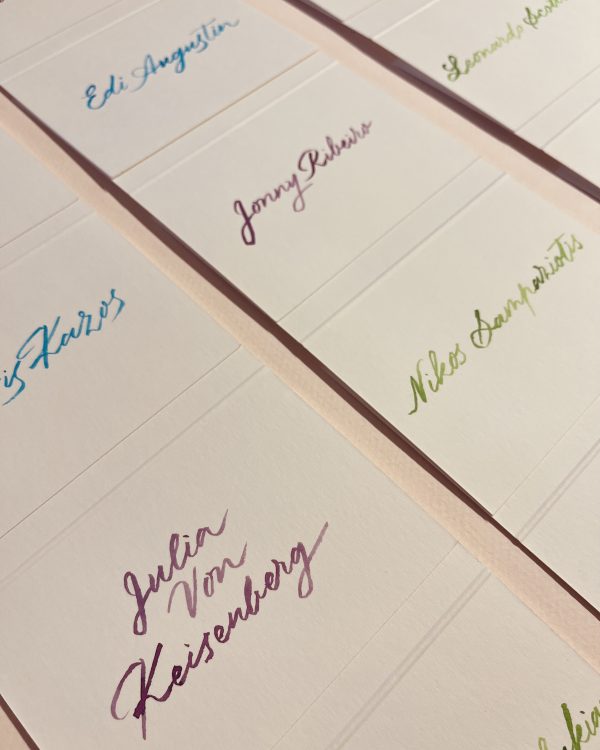 Edi Augustin
Leonardo
Jonny Ribeiro
Kazos
Nikos Sampaziotis
Julia
Von
Keisenberg